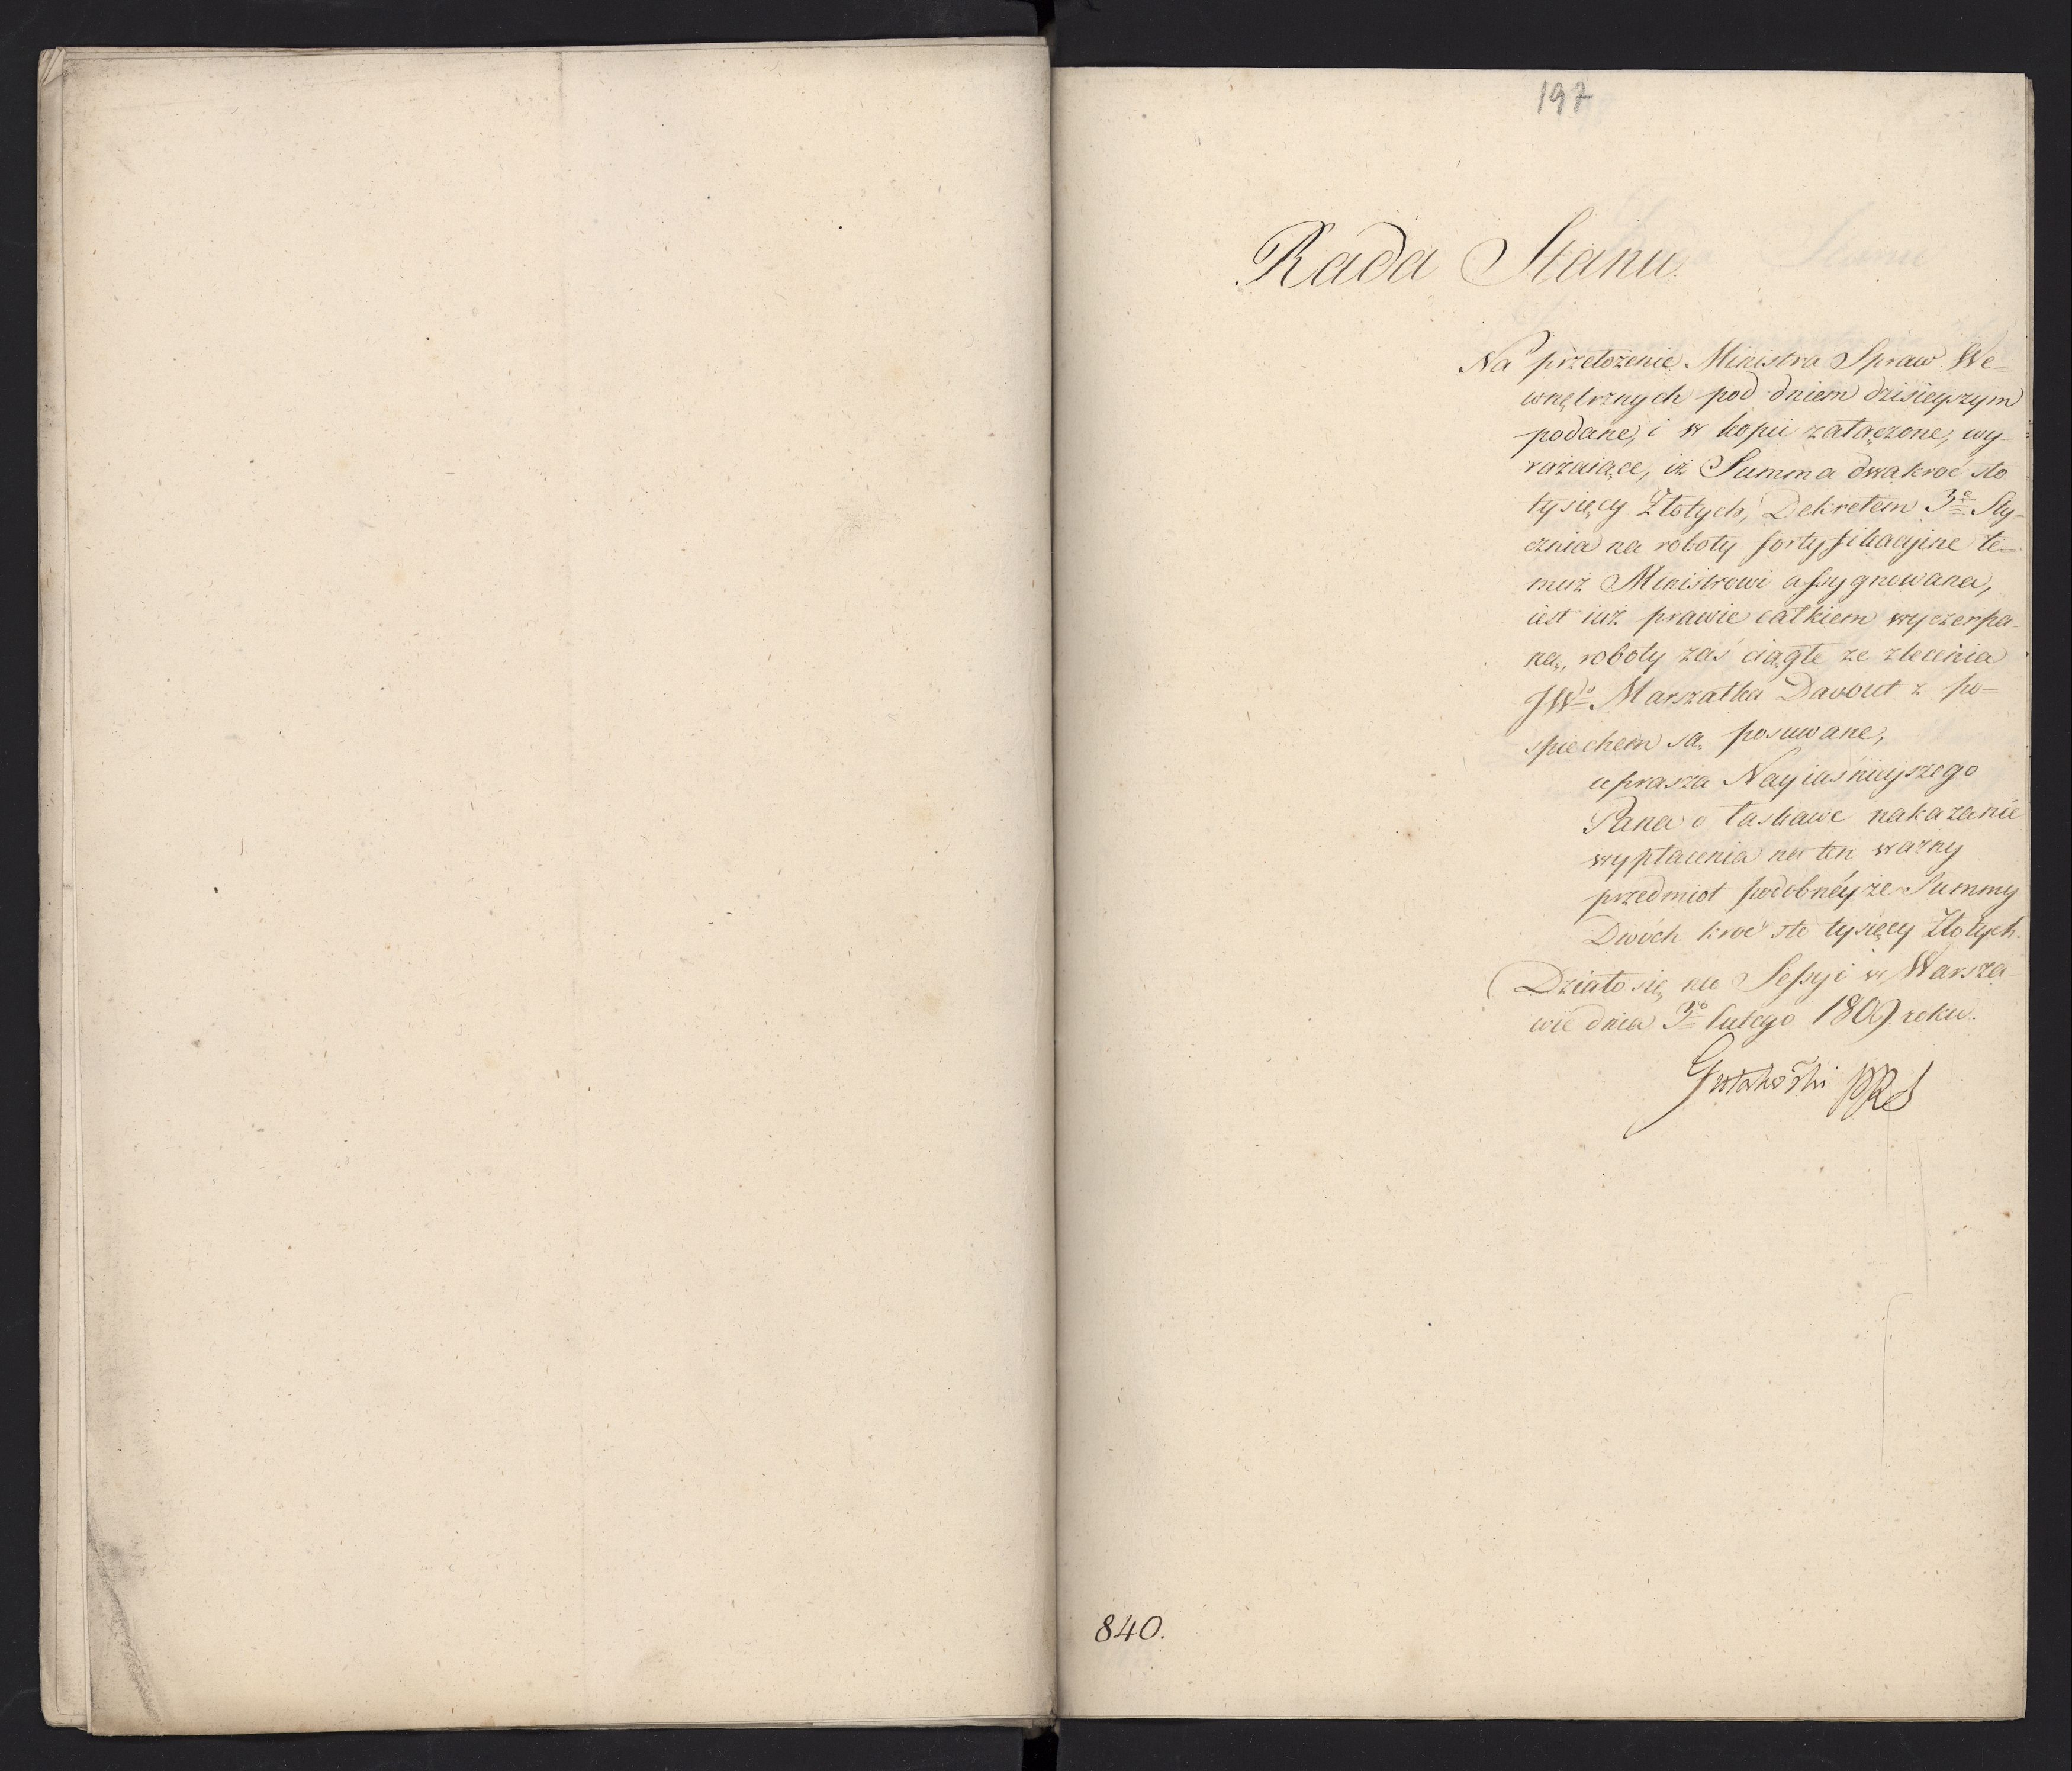 197
Rada Stanu
Na przełożenie Ministra Spraw We=
wnętrznych pod dniem dzisieyszym
podane, i w kopii załączone, wy-
rażaiące, iż Summa dwakroć sto
tysięcy Złotych, Dekretem 3º Sty-
cznia na roboty fortyfikacyine te=
muż Ministrowi assygnowana,
iest iuż prawie całkiem wyczerpa-
ną, roboty zaś ciągłe ze zlecenia
JWº Marszałka Davout z po=
spiechem są posuwane,
uprasza Nayiaśnieyszego
Pana o łaskawe nakazanie
wypłacenia na ten ważny
przedmiot podobnéyże Summy
Dwóch kroć sto tysięcy Złotych.
Działo się na Sessyi w Warsza-
wie dnia 3º lutego 1809 roku.
Gutakowski PRS
840.